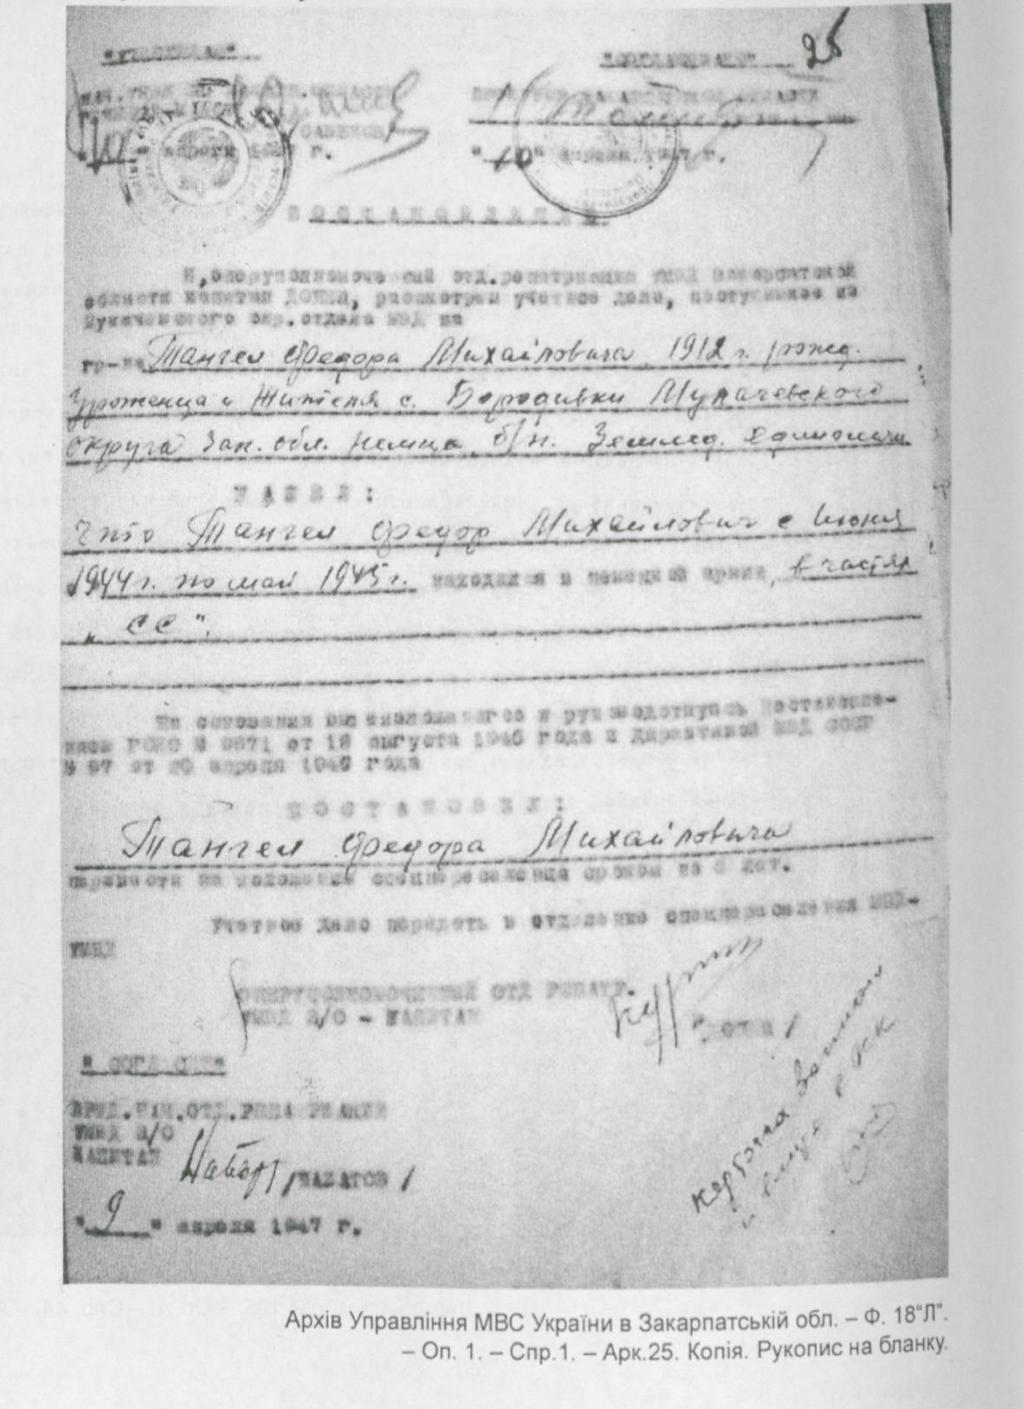 "УТВЕРЖДАЮ"
"САНКЦИОНИРУЮ" 25
апреля 1947 г.
"10" апреля 1947 г.
ПОСТАНОВЛЕНИЕ
Я, оперуполномоченный отд. репатриации УМВД Закарпатской
области капитан, рассмотрев учетное дело, поступившее из
Мукачевского окр. отдела МВД на
гр-на Тангел Федора Михайловича, 1912 г. рожд.
Уроженца и жителя с. Бородивки Мукачевского
округа Зак. обл. немца, б/п. Землед.
НАШЕЛ:
Что Тангел Федор Михайлович с июня
1944 г. по май 1945 г. находился в немецкой армии, в частях
"СС".
На основании вышеизложенного и руководствуясь Постановле-
нием ГОКО № 9871 от 18 августа 1945 года и директивой МВД СССР
№ 97 от 20 апреля 1946 года
ПОСТАНОВИЛ:
Тангел Федора Михайловича
перевести на положение спецпереселенца сроком на 6 лет.
Учетное дело передать в отделение спецпереселения МВД-
УМВД
ОПЕРУПОЛНОМОЧЕННЫЙ ОТД РЕПАТР.
УМВД З/О - КАПИТАН
"СОГЛАСЕН"
ВРИД. НАЧ. ОТД. РЕПАТРИАЦИИ
УМВД З/О
КАПИТАН
"9" апреля 1947 г.
Архів Управління МВС України в Закарпатській обл. – Ф. 18"Л".
– Оп. 1. – Спр.1. – Арк.25. Копія. Рукопис на бланку.